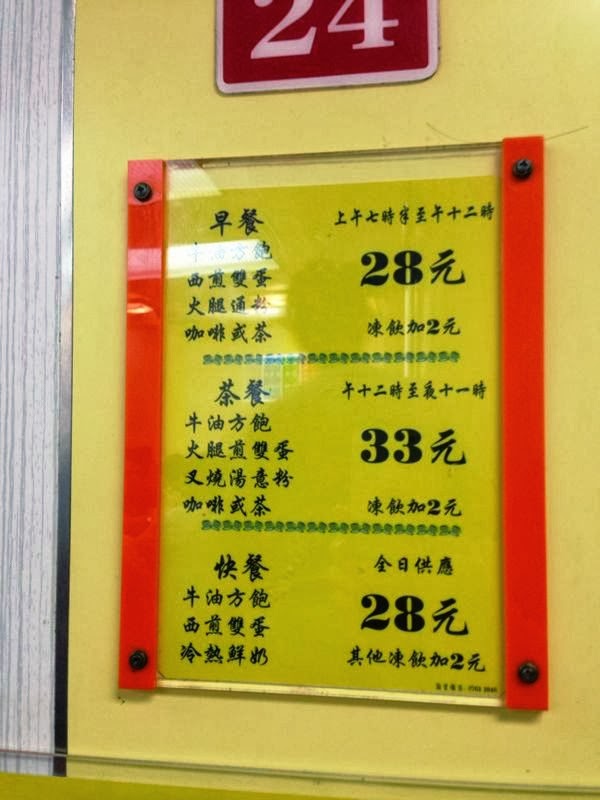 24
早餐
上午七時半至午十二時
牛油方飽
西煎雙蛋
28元
火腿通粉
咖啡或茶
凍飲加2元
茶餐
午十二時至夜十一時
牛油方飽
火腿煎雙蛋
33元
叉燒湯意粉
咖啡或茶
凍飲加2元
快餐
全日供應
牛油方飽
西煎雙蛋
28元
冷熱鮮奶
其他凍飲加2元